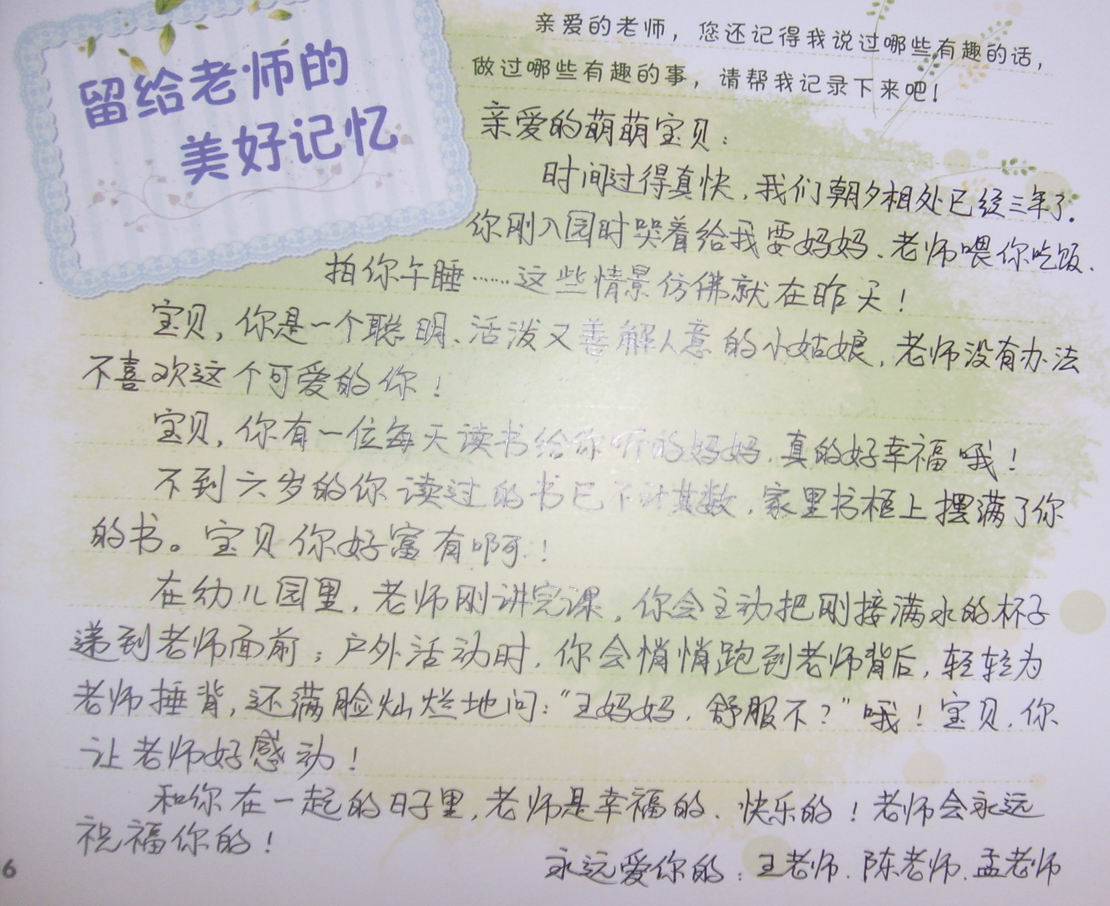 留给老师的
美好记忆
亲爱的老师，您还记得我说过哪些有趣的话，
做过哪些有趣的事，请帮我记录下来吧！
亲爱的萌萌宝贝：
时间过得真快，我们朝夕相处已经三年了.
你刚入园时哭着给我要妈妈、老师喂你吃饭、
拍你午睡……这些情景仿佛就在昨天！
宝贝，你是一个聪明、活泼又善解人意的小姑娘，老师没有办法
不喜欢这个可爱的你！
宝贝，你有一位每天读书给你听的妈妈，真的好幸福哦！
不到六岁的你读过的书已不计其数，家里书柜上摆满了你
的书。宝贝你好富有啊！
在幼儿园里，老师刚讲完课，你会主动把刚接满水的杯子
递到老师面前；户外活动时，你会悄悄跑到老师背后，轻轻为
老师捶背，还满脸灿烂地问：“王妈妈，舒服不？”哦！宝贝，你
让老师好感动！
和你在一起的日子里，老师是幸福的、快乐的！老师会永远
祝福你的！
永远爱你的：王老师、陈老师、孟老师
6